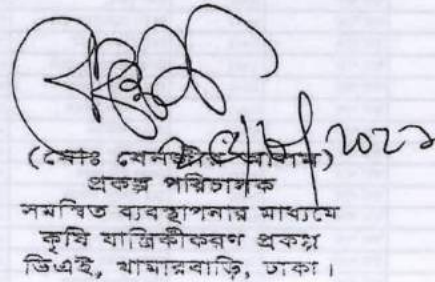 (মোঃ বেনজীর আলম)
প্রকল্প পরিচালক
সমন্বিত ব্যবস্থাপনার মাধ্যমে
কৃষি যান্ত্রিকীকরণ প্রকল্প
ডিএই, খামারবাড়ি, ঢাকা।